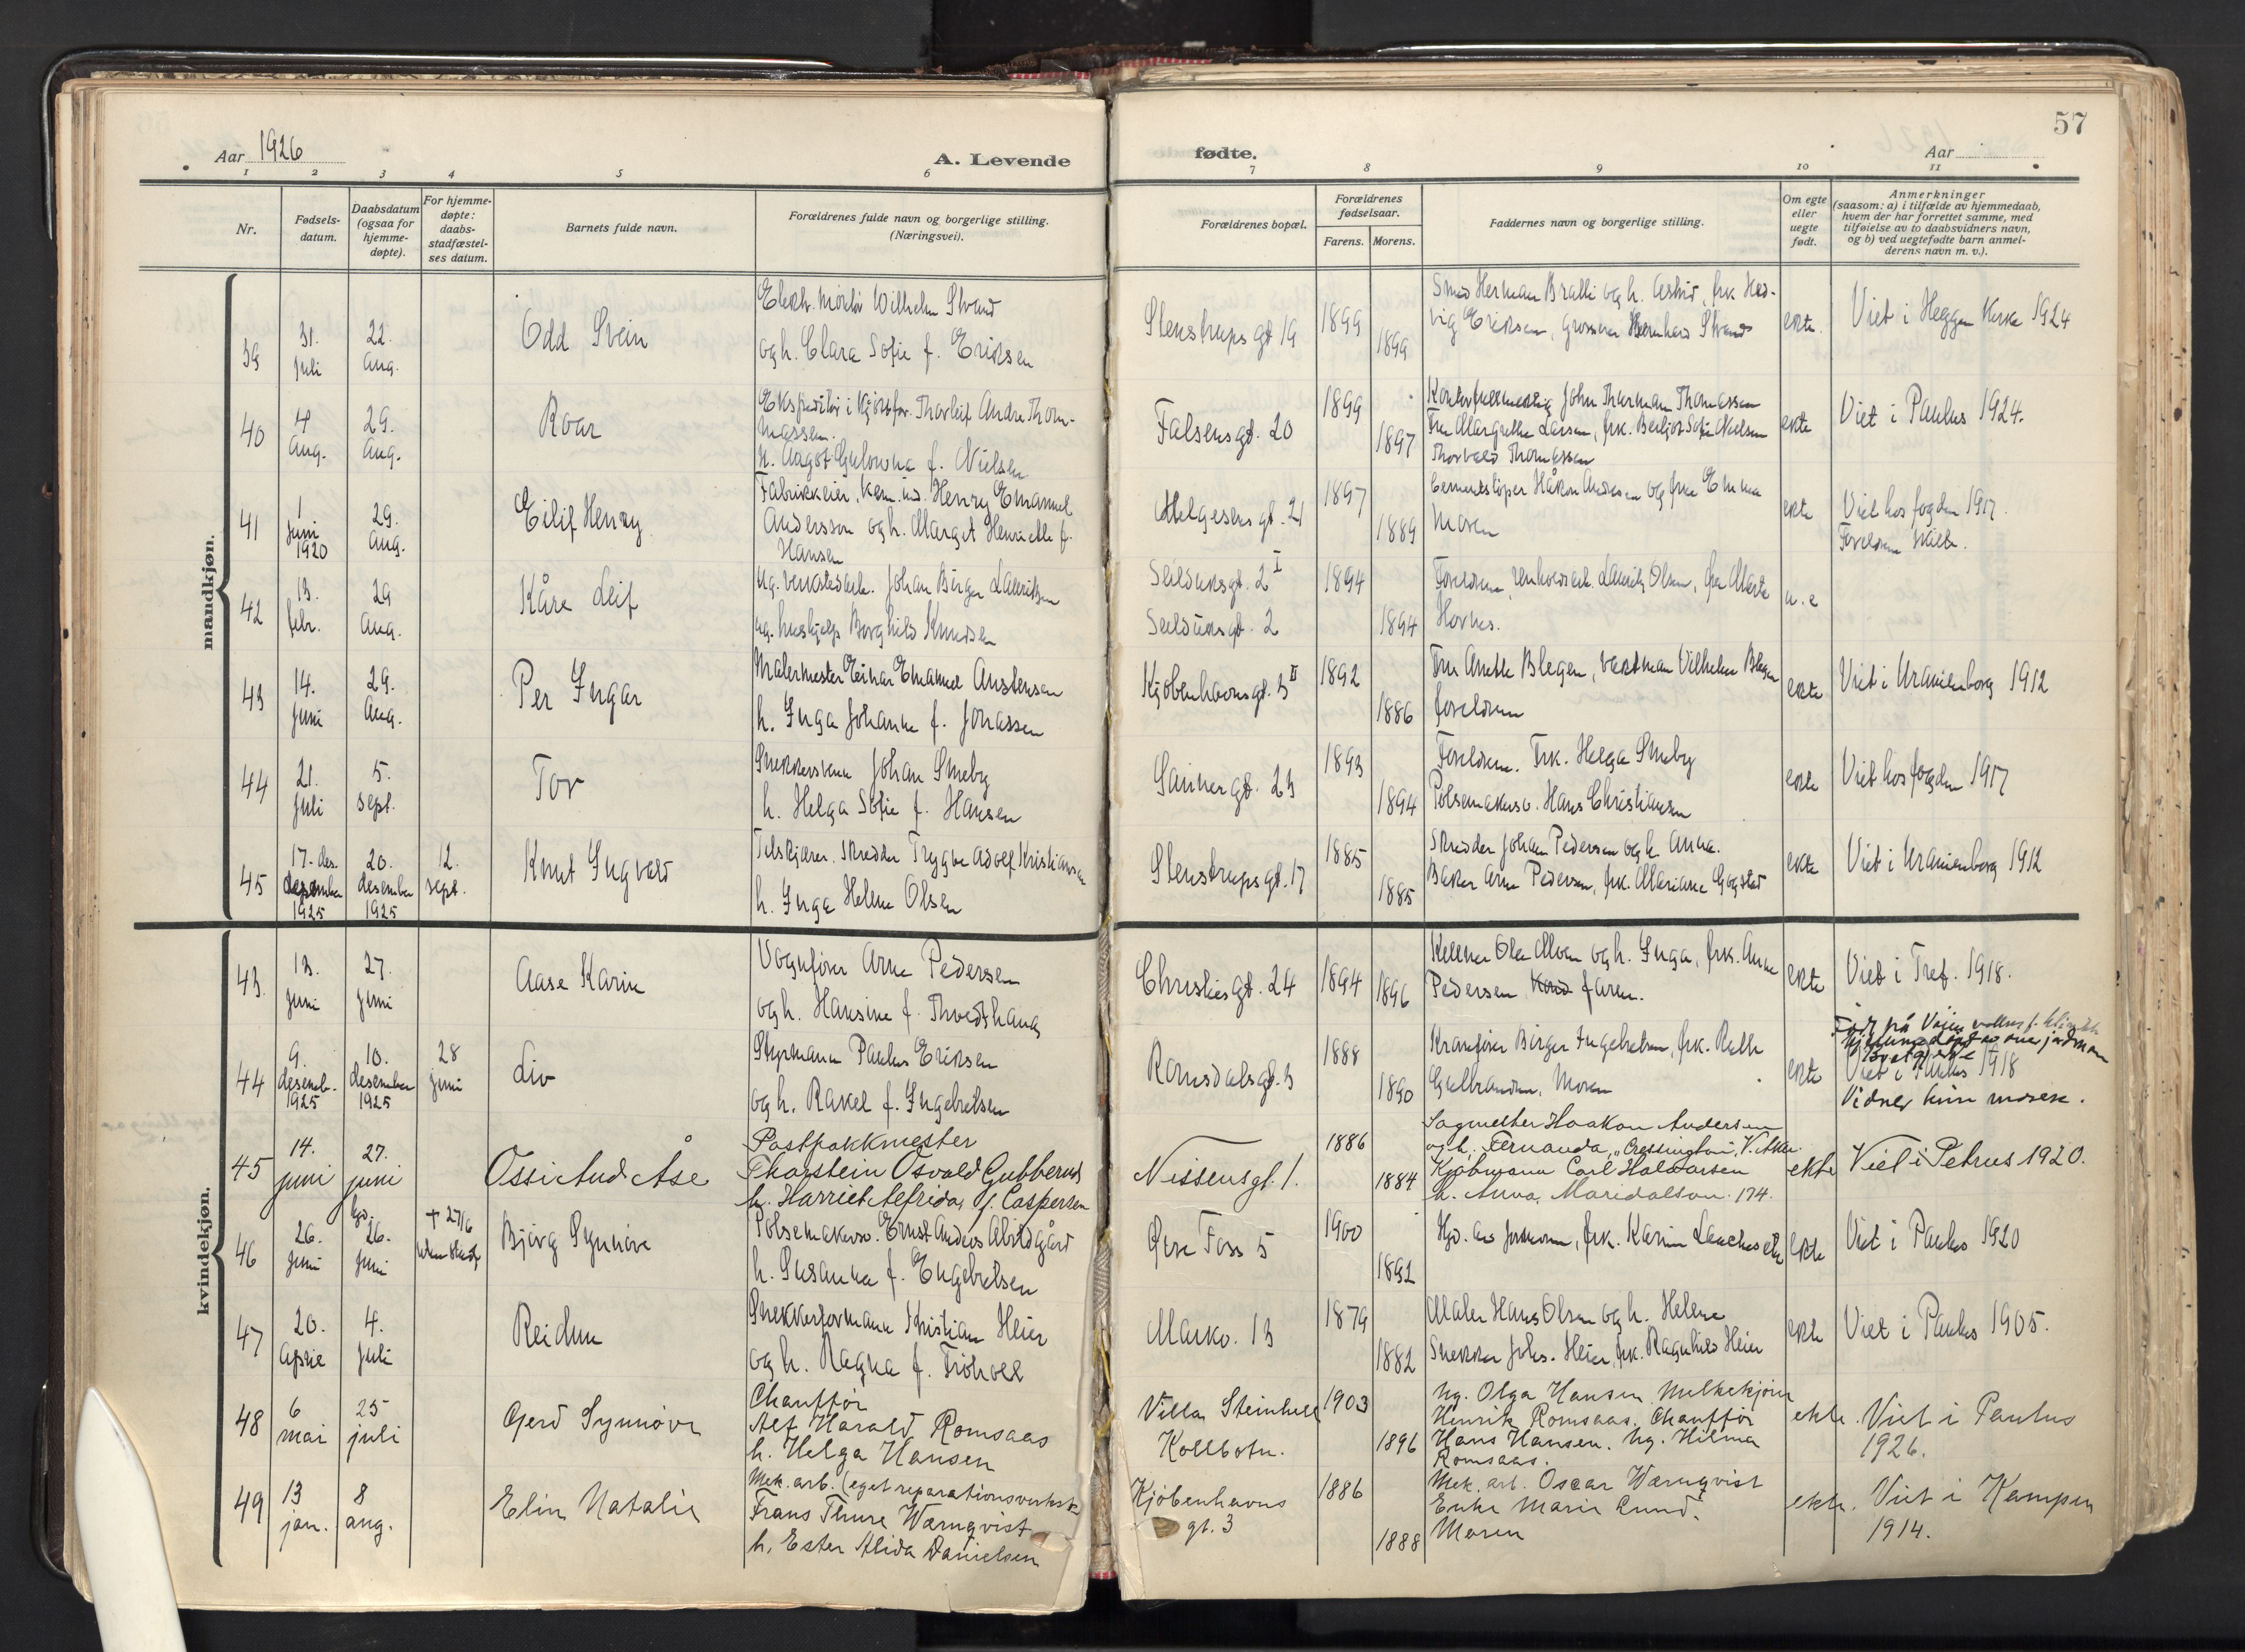 57
Aar 1926
A. Levende
fødte.
Aar
1 2 3 4 5 6 7 8 9 10 11
Nr.
Fødsels-
datum.
Daabsdatum
(ogsaa for
hjemme-
døpte).
For hjemme-
døpte:
daabs-
stadfæstel-
ses datum.
Barnets fulde navn.
Forældrenes fulde navn og borgerlige stilling.
(Næringsvei).
Forældrenes bopæl.
Forældrenes
fødselsaar.
Farens. Morens.
Faddernes navn og borgerlige stilling.
Om egte
eller
uegte
født.
Anmerkninger
(saasom: a) i tilfælde av hjemmedaab,
hvem der har forrettet samme, med
tilføielse av to daabsvidners navn,
og b) ved uegtefødte barn anmel-
derens navn m. v.).
mandkjøn.
39
31.
juli
22.
Aug.
Odd Svein
Elektr. montør Wilhelm Strand
og h. Clara Sofie f. Eriksen
Stenstrups gt 19
1899
1899
Smed Herman Bratli og h. Astrid, frk Hed-
vig Eriksen, Grosserer Bernhard Strand
ekte.
Viet i Heggen Kirke 1924
40
4
Aug.
29.
Aug.
Roar
Ekspeditør i Kjøttfor. Thorleif Andre Thom-
massen.
h. Aagot Gulowna f. Nielsen
Falsensgt. 20
1899
1897
Kontorfullmektig John Thurman Thomassen
Fru Margrethe Larsen, frk. Bergljot Sofie Nielsen
Thorvald Thomassen
ekte
Viet i Paulus 1924.
41
1
Juni
1920
29.
Aug.
Eilif Henry
Fabrikkeier, kem. ind. Henry Emanuel
Andersson og h. Margit Henriette f.
Hansen
Helgesens gt. 21
1897
1889
Cementstøper Håkon Andersen og fru Emma
Moren
ekte
Viet hos fogden 1917.
Foreldrene skilt.
42
13.
febr.
29
Aug.
Kåre Leif
Ug. verkstedarb. Johan Birger Lauritsen
ug. hushjelp Borghild Knudsen
Seilduksgt. 2 I
Seilduksgt. 2
1894
1894
Foreldrene, renholdsarb. Lauritz Olsen, fru Marte
Hovnes.
u.e
43
14.
juni
29.
Aug.
Per Ingar
Malermester Einar Emanuel Austensen
h. Inga Johanne f. Jonassen
Kjøbenhavnsgt. 3 II
1892
1886
Fru Anette Blegen, vaktman Vilhelm Blegen
foreldrene
ekte
Viet i Uranienborg 1912
44
21.
juli
5.
sept.
Tor
Snekkersvenn Johan Smeby
h. Helga Sofie f. Hansen
Sannergt. 23
1893
1894
Foreldrene. Frk. Helga Smeby
Pølsemakersv. Hans Christiansen
ekte
Viet hos fogden 1917
45
17. des.
desember
1925
20.
desember
1925
12.
sept.
Knut Ingvald
Tilskjærer, Skredder Trygve Adolf Kristiansen
h. Inga Helene Olsen
Stenstrupsgt. 17
1885
1885
Skredder Johan Pedersen og h. Anna.
Baker Arne Pedersen, frk. Mariane Gogstad
ekte
Viet i Uranienborg 1912
kvindekjøn.
43.
13.
juni
27.
juni
Aase Karin
Vognfører Arne Pedersen
og h. Hansine f. Thvedthaug
Christiesgt. 24
1894
1896
Kellner Ole Moen og h. Inga, frk. Anne
Pedersen faren.
ekte
Viet i Tref. 1918.
44
9.
desemb.
1925
10.
desember
1925
28
juni
Liv
Styrmann Paulus Eriksen
og h. Rakel f. Ingebretsen
Romsdalsgt. 3
1888
1890
Kranfører Birger Ingebretsen, frk. Ruth
Gulbrandsen, Moren
ekte
Født på
Hjemmedøpt av jordmor
Viet i Paulus 1918
Vidner kun moren.
45
14.
juni
27.
juni
Ossi Aud Åse
Postpakkmester
Thorstein Osvald Gubberud
h. Harriet Alfrida, f. Caspersen
Nissensgt. 1.
1886
1884
Sagmester Haakon Andersen
og h. Fernanda, "Cressington", V. Aker
Kjøbmann Carl Halvorsen
h. Anna, Maridalsvn. 174.
ekte
Viet i Petrus 1920.
46
26.
juni
hjd.
26.
juni
+ 27/6
uten stadf.
Bjørg Synnøve
Pølsemakersv. Ernst Anders Abildgård
h. Susanna f. Engebretsen
Øvre Foss 5
1900
1892
Hjd. av jordmoren, frk. Karin
ekte
Viet i Paulus 1920
47
20.
April
4.
juli
Reidun
Snekkerformann Kristian Heier
og h. Ragna f. Frohvell
Markv. 13
1879
1882
Maler Hans Olsen og h. Helene
Snekker Johs. Heier, frk. Ragnhild Heier
ekte
Viet i Paulus 1905.
48
6
mai
25
juli
Gerd Synnøve
Chauffør
Alf Harald Romsaas
h. Helga Hansen
Villa Steinhell
Kolbotn.
1903
1896
Ug. Olga Hansen. Melkekjører
Henrik Romsaas. Chauffør
Hans Hansen. Ug. Hilma
Romsaas.
ekte.
Viet i Paulus
1926.
49
13
jan.
8
aug.
Elin Natalie
Mek. arb. (eget reparationsverkst.)
Frans Thure Wærnqvist
h. Ester Alida Danielsen
Kjøbenhavns
gt. 3
1886
1888
Mek. arb. Oscar Wærnqvist
Enke Marie Lund.
Moren
ekte.
Viet i Kampen
1914.